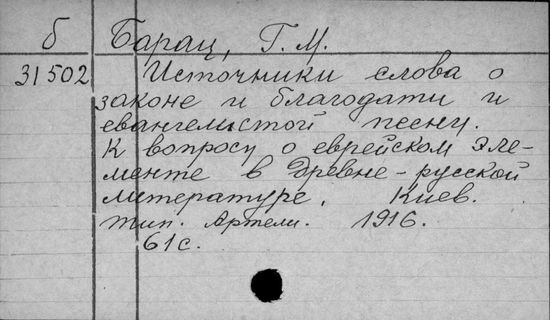 б Барац, Г. М.
31502 Источники слова о
законе и благодати и
евангелистой песни.
К вопросу о еврейском эле-
менте в Древне-русской
литературе. Киев.
тип. Артели. 1916.
61 с.